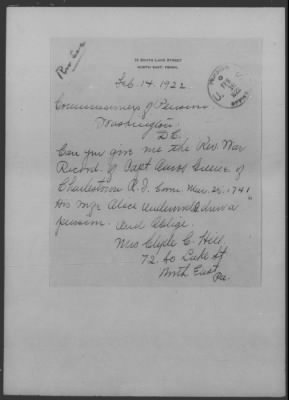 72 SOUTH LAKE STREET
NORTH EAST, PENNA.
Rev War
Feb. 14. 1922
Commissioners of Pensions
Washington
D.C.
Can you give me the Rev. War
Record of Capt Amos Greene of
Charlestown R.I. Born Mar. 1741
His Amie drew a
pension. and Oblige.
Mrs Clyde C. Hill
72 So Lake St
North East
Pa.